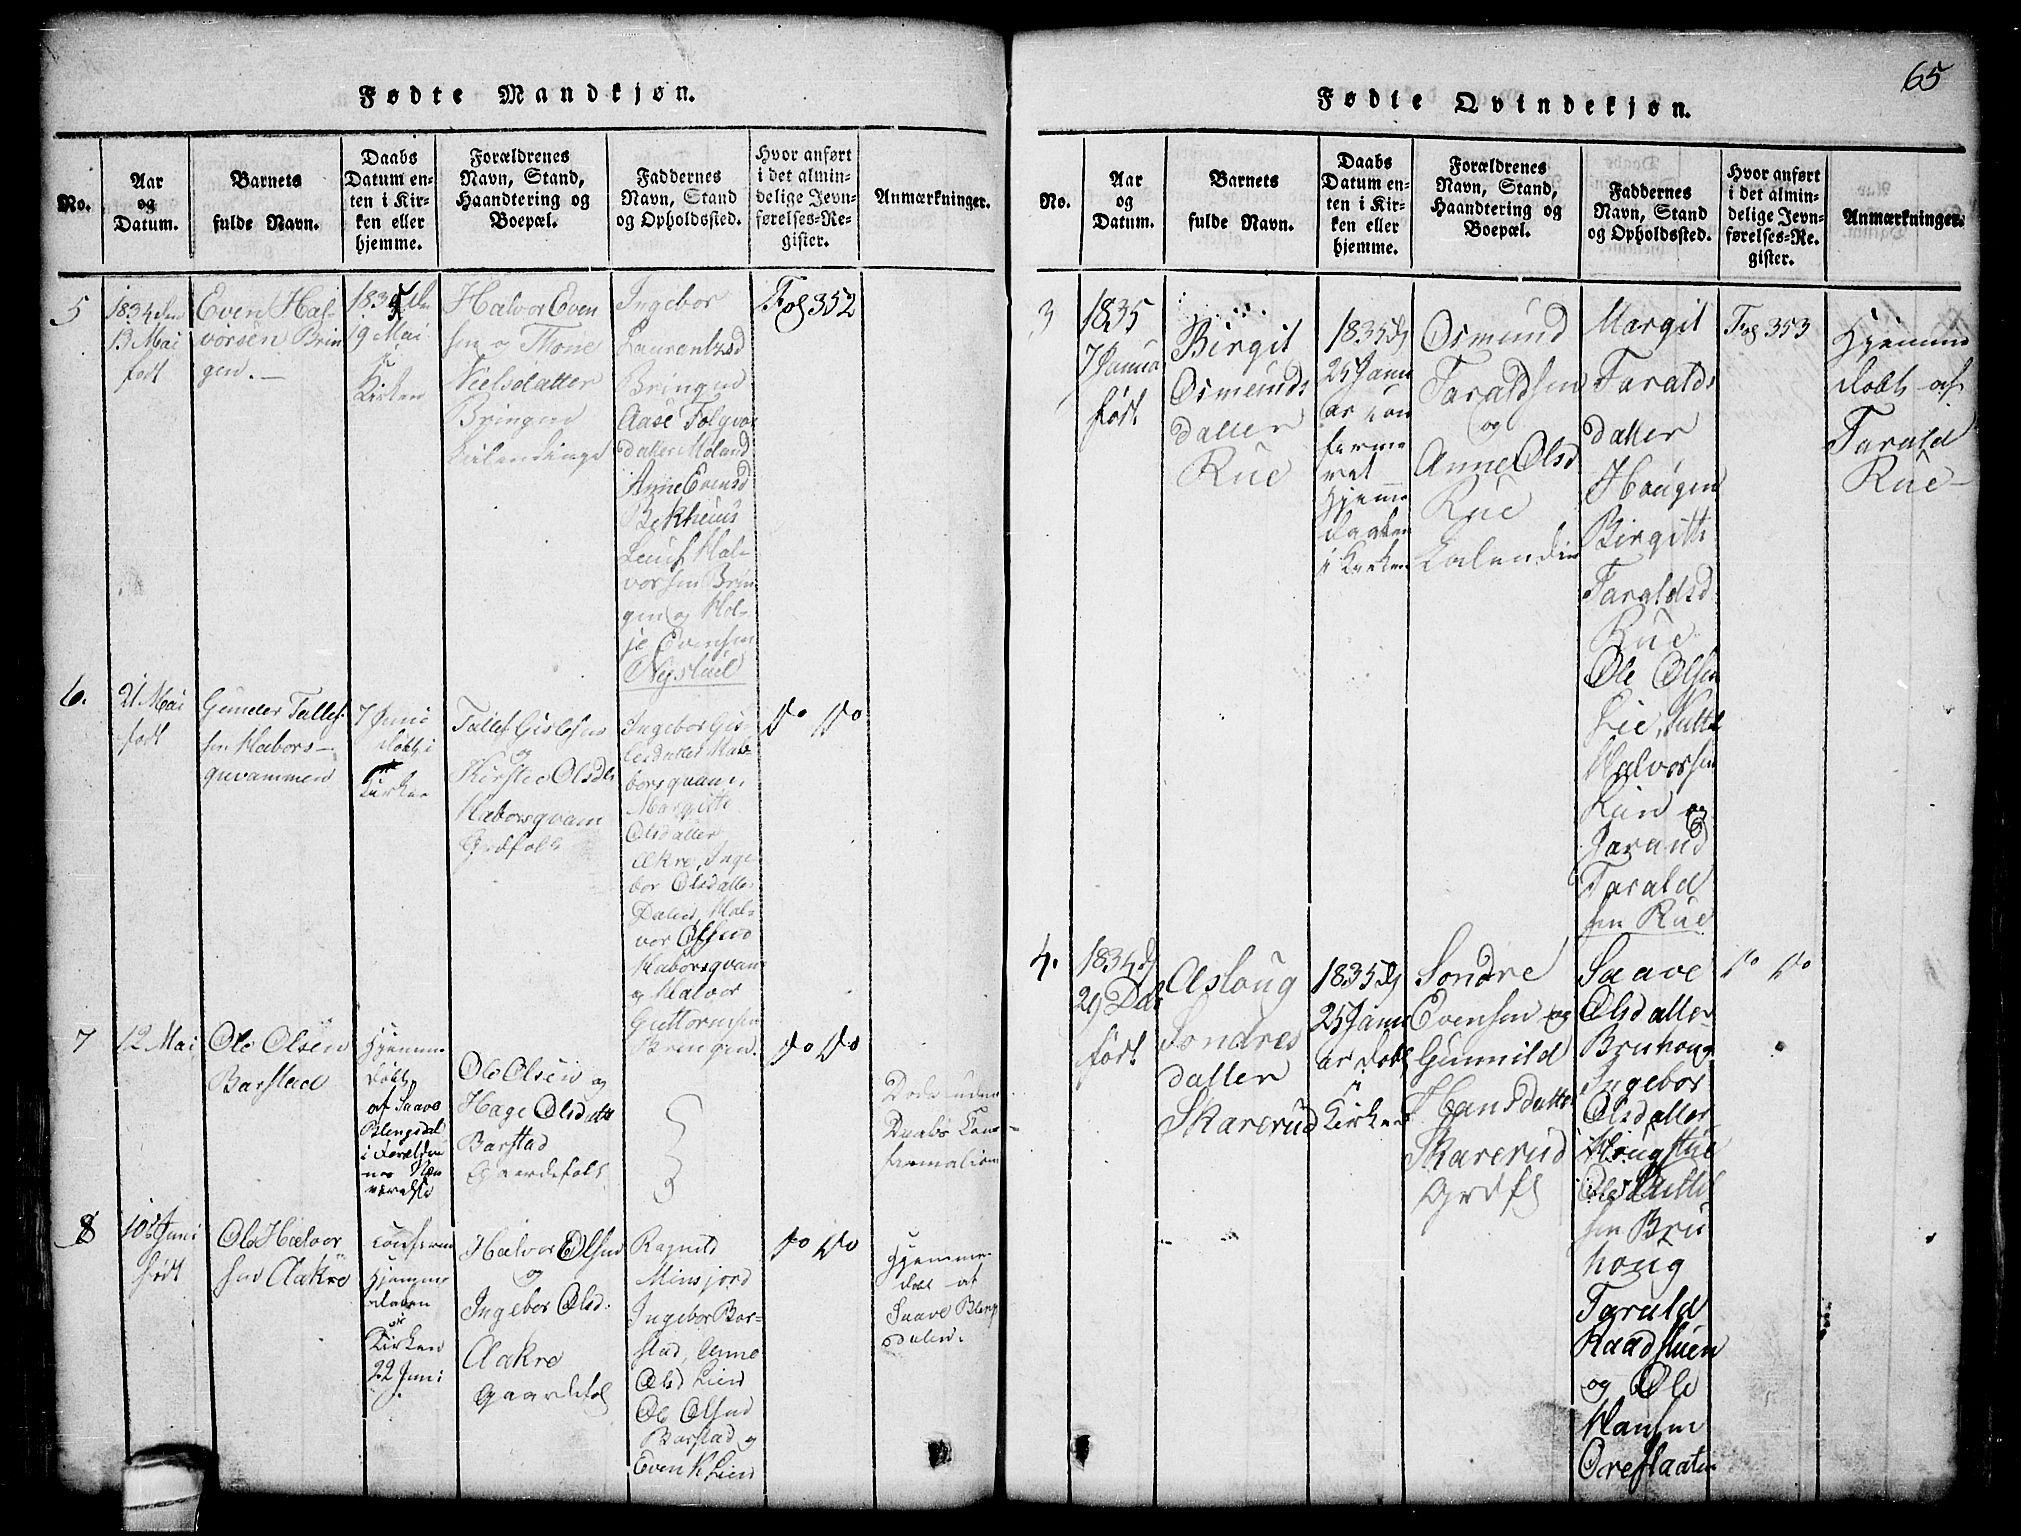 65
Fødte Mandkjøn.
No.
Aar
og
Datum.
Barnets
fulde Navn.
Daabs
Datum en-
ten i Kir-
ken eller
hjemme.
Forældrenes
Navn, Stand,
Haandtering og
Boepæl.
Faddernes
Navn, Stand
og Opholdssted.
Hvor anført
i det almin-
delige Jevn-
førelses-Re-
gister.
Anmærkninger.
5
1834 den
13 Mai
født
Even Hal-
vorsen Brin
gen.
1835 den
19 Mai
i
Kirken
Halvor Even
sen og Thone
Nielsdatter
Bringen
Ingebor
Laurentzsd
Bringen
Aase Folqvar
datter Moland
Anne Evensd
Bekheuus
Leuf Hal-
vorsen Brin
gen og Hol-
je Evensen
Nystuel
Fol 352
6.
21 Mai
født
Gunder Tallef-
sen Habors-
quvammen
7 Juni
døbt i
Kirken
Tallef Gislesen
og
Kirstee Olsdtr
Haborsqvam
Grdfolk
Ingebor Gis-
lesdatter Hab-
borsqvam,
Margitte
Olsdatter
Akre, Inge-
bor Olsdatter
Dalen, Hal-
vor Olsen
Haborsqvam
og Halvor
Guttormsen
Bringen.
do do
7
12 Mai
Ole Olsen
Barstad
Hjemme
døbt
af Saave
Blengsdal
i Foreldre
nes Nær
værelse
Ole Olsen og
Hage Olsdatt
Barstad
Gaardefolk
do do
Døde uden
Daabs Con-
firmation
8
10de Juni
født
Ole Halvor
sen Aakre
Confirm
Hjemme
daaben
i
Kirken
22 Juni
Halvor Olsen
og
Ingebor Olsd.
Aakre
Gaardefol
Ragnild
Minsjord
Ingebor Bar-
stad, Anne
Olsd Lien
Ole Olsen
Barstad og
Even K Lien
do do
Hjemme
døbt af
Saave Bleng
dalen.
Fødte Qvindekjøn.
No.
Aar
og
Datum.
Barnets
fulde Navn.
Daabs
Datum en-
ten i Kir-
ken eller
hjemme.
Forældrenes
Navn, Stand,
Haandtering og
Boepæl.
Faddernes
Navn, Stand
og Opholdssted.
Hvor anført
i det almin-
delige Jevn-
førelses-Re-
gister.
Anmærkninger.
3
1835
7 Janua
født
Birgit
Osmunds
datter
Rue
1835 d
25 Janu
ar con
ferme
ret
Hjemme
daaben
i Kirken
Osmund
Taraldsen
og
Anne Olsd
Rue
Margit
Taralds
datter
Hougen
Birgitte
Taraldsd
Rue
Ole Olsen
Lie,
Halvorsen
Lien og
Jarand
Tarald
sen Rue
Fol 353
Hjemme
døbt af
Tarald
Rue
4.
1834 d
29 Des
født
Asloug
Sondres
datter
Skarerud
1835 d
25 Janu
ar døbt
i
Kirken
Sondre
Evensen og
Gunnild
Hansdatter
Skarerud
Grdfl
Saave
Olsdatter
Bruhoug
Ingebor
Olsdatter
Hougstue
Ole
sen Bru
houg
Tarald
Raadstuen
og Ole
Hansen
Oreflaaten
do do